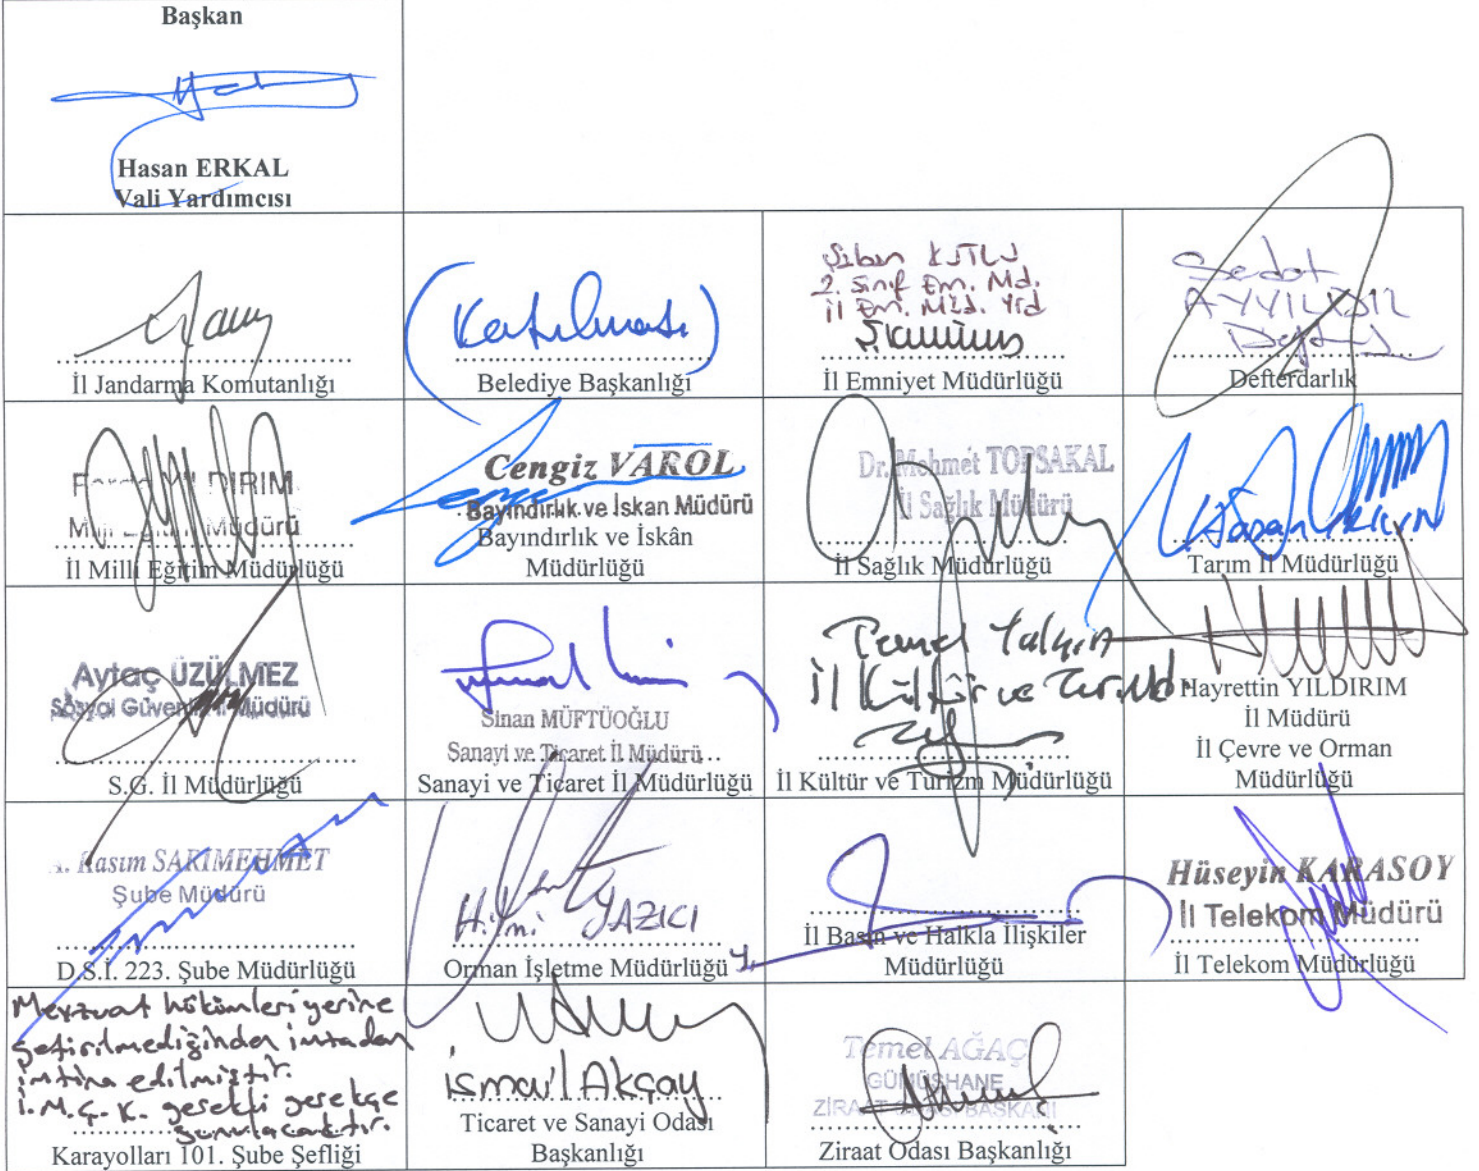 Başkan
Hasan ERKAL
Vali Yardımcısı
İl Jandarma Komutanlığı
(Katılmadı)
Belediye Başkanlığı
Şaban KUTLU
2. Sınıf Em. Md.
İl Em. Müd. Yrd
İl Emniyet Müdürlüğü
Sedat
AYYILDIZ
Defterdarlık
YILDIRIM
Müdürü
İl Milli Eğitim Müdürlüğü
Cengiz VAROL
Bayındırlık ve İskan Müdürü
Bayındırlık ve İskân
Müdürlüğü
Dr. Mehmet TOPSAKAL
İl Sağlık Müdürü
İl Sağlık Müdürlüğü
Hasan
Tarım İl Müdürlüğü
Aytaç ÜZÜLMEZ
Sosyal Güvenlik İl Müdürü
S.G. İl Müdürlüğü
Sinan MÜFTÜOĞLU
Sanayi ve Ticaret İl Müdürü
Sanayi ve Ticaret İl Müdürlüğü
Temel Yalçın
İl Kültür ve Tur. Md.
İl Kültür ve Turizm Müdürlüğü
Hayrettin YILDIRIM
İl Müdürü
İl Çevre ve Orman
Müdürlüğü
A. Kasım SARIMEHMET
Şube Müdürü
D.S.İ. 223. Şube Müdürlüğü
Hilmi YAZICI
Orman İşletme Müdürlüğü
İl Basın ve Halkla İlişkiler
Müdürlüğü
Hüseyin KARASOY
İl Telekom Müdürü
İl Telekom Müdürlüğü
Mevzuat hükümleri yerine
getirilmediğinden imzadan
imtina edilmiştir.
İ.M.Ç.K. gerekli gerekçe
sunulacaktır.
Karayolları 101. Şube Şefliği
İsmail Akçay
Ticaret ve Sanayi Odası
Başkanlığı
Temel AĞAÇ
GÜMÜŞHANE
ZİRAAT ODASI BAŞKANI
Ziraat Odası Başkanlığı